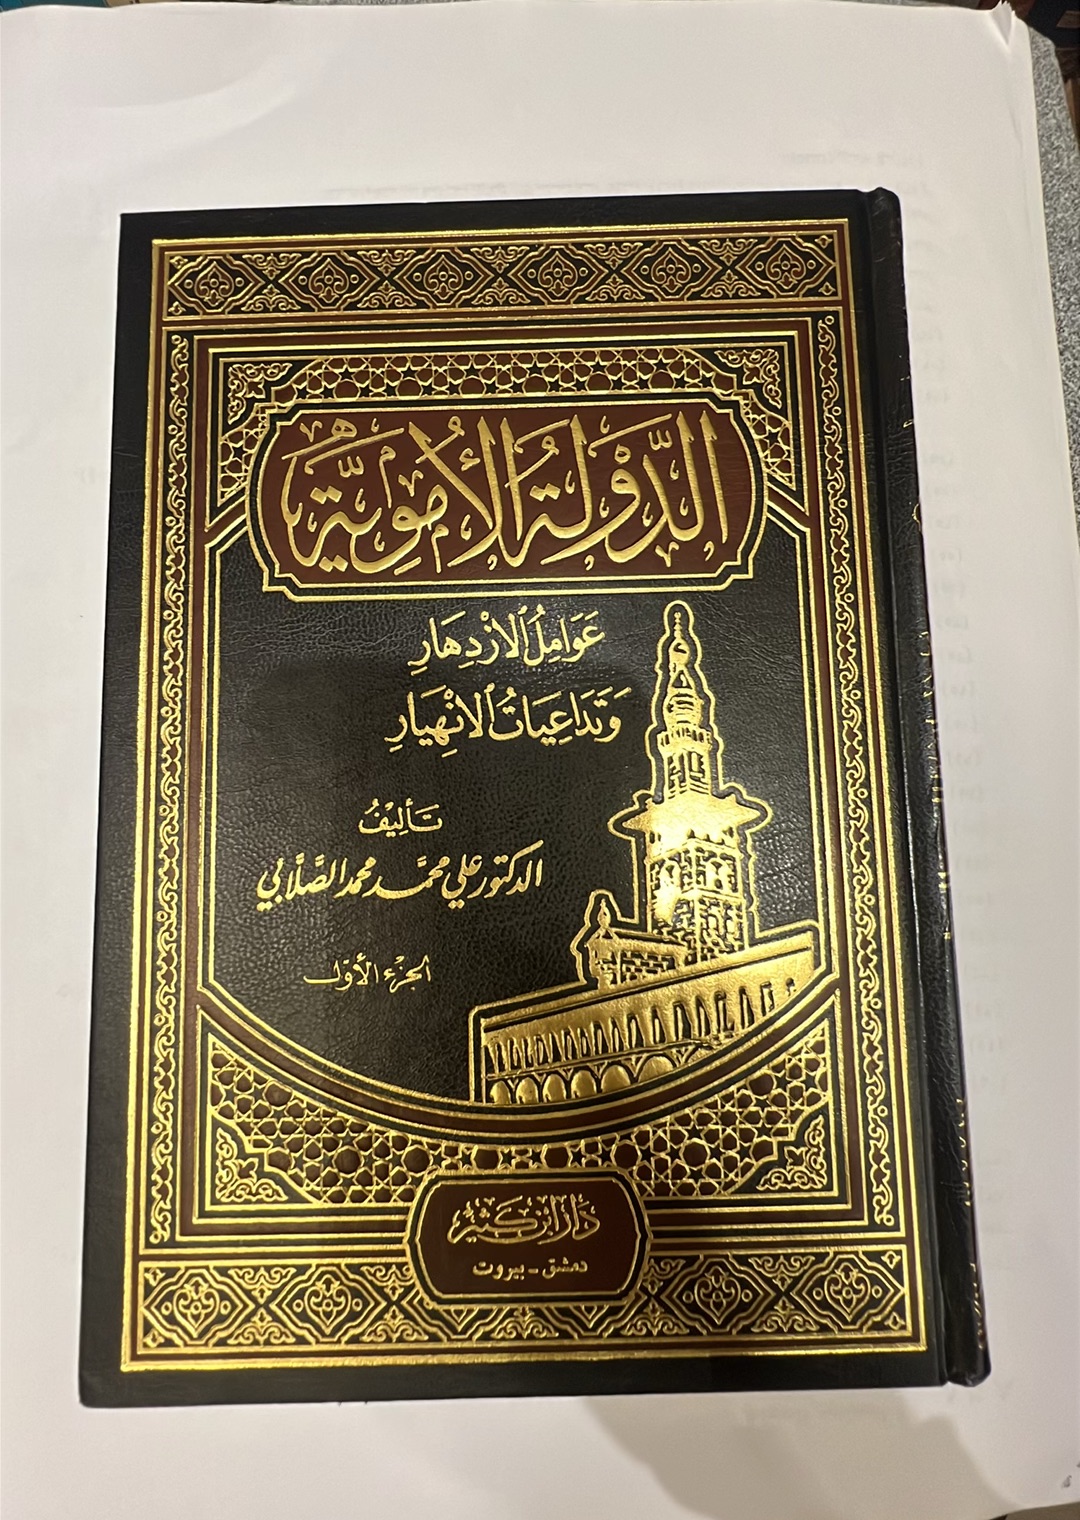 الدَّوْلَةُ الأُمَوِيَّة
عَوَامِلُ الازْدِهَارِ
وَتَدَاعِيَاتُ الانْهِيَارِ
تَأْلِيْفُ
الدكتور علي محمَّد محمد الصَّلَّابي
الجزْء الأوّل
دَارُ ابْنِ كَثِيْر
دمشق - بيروت